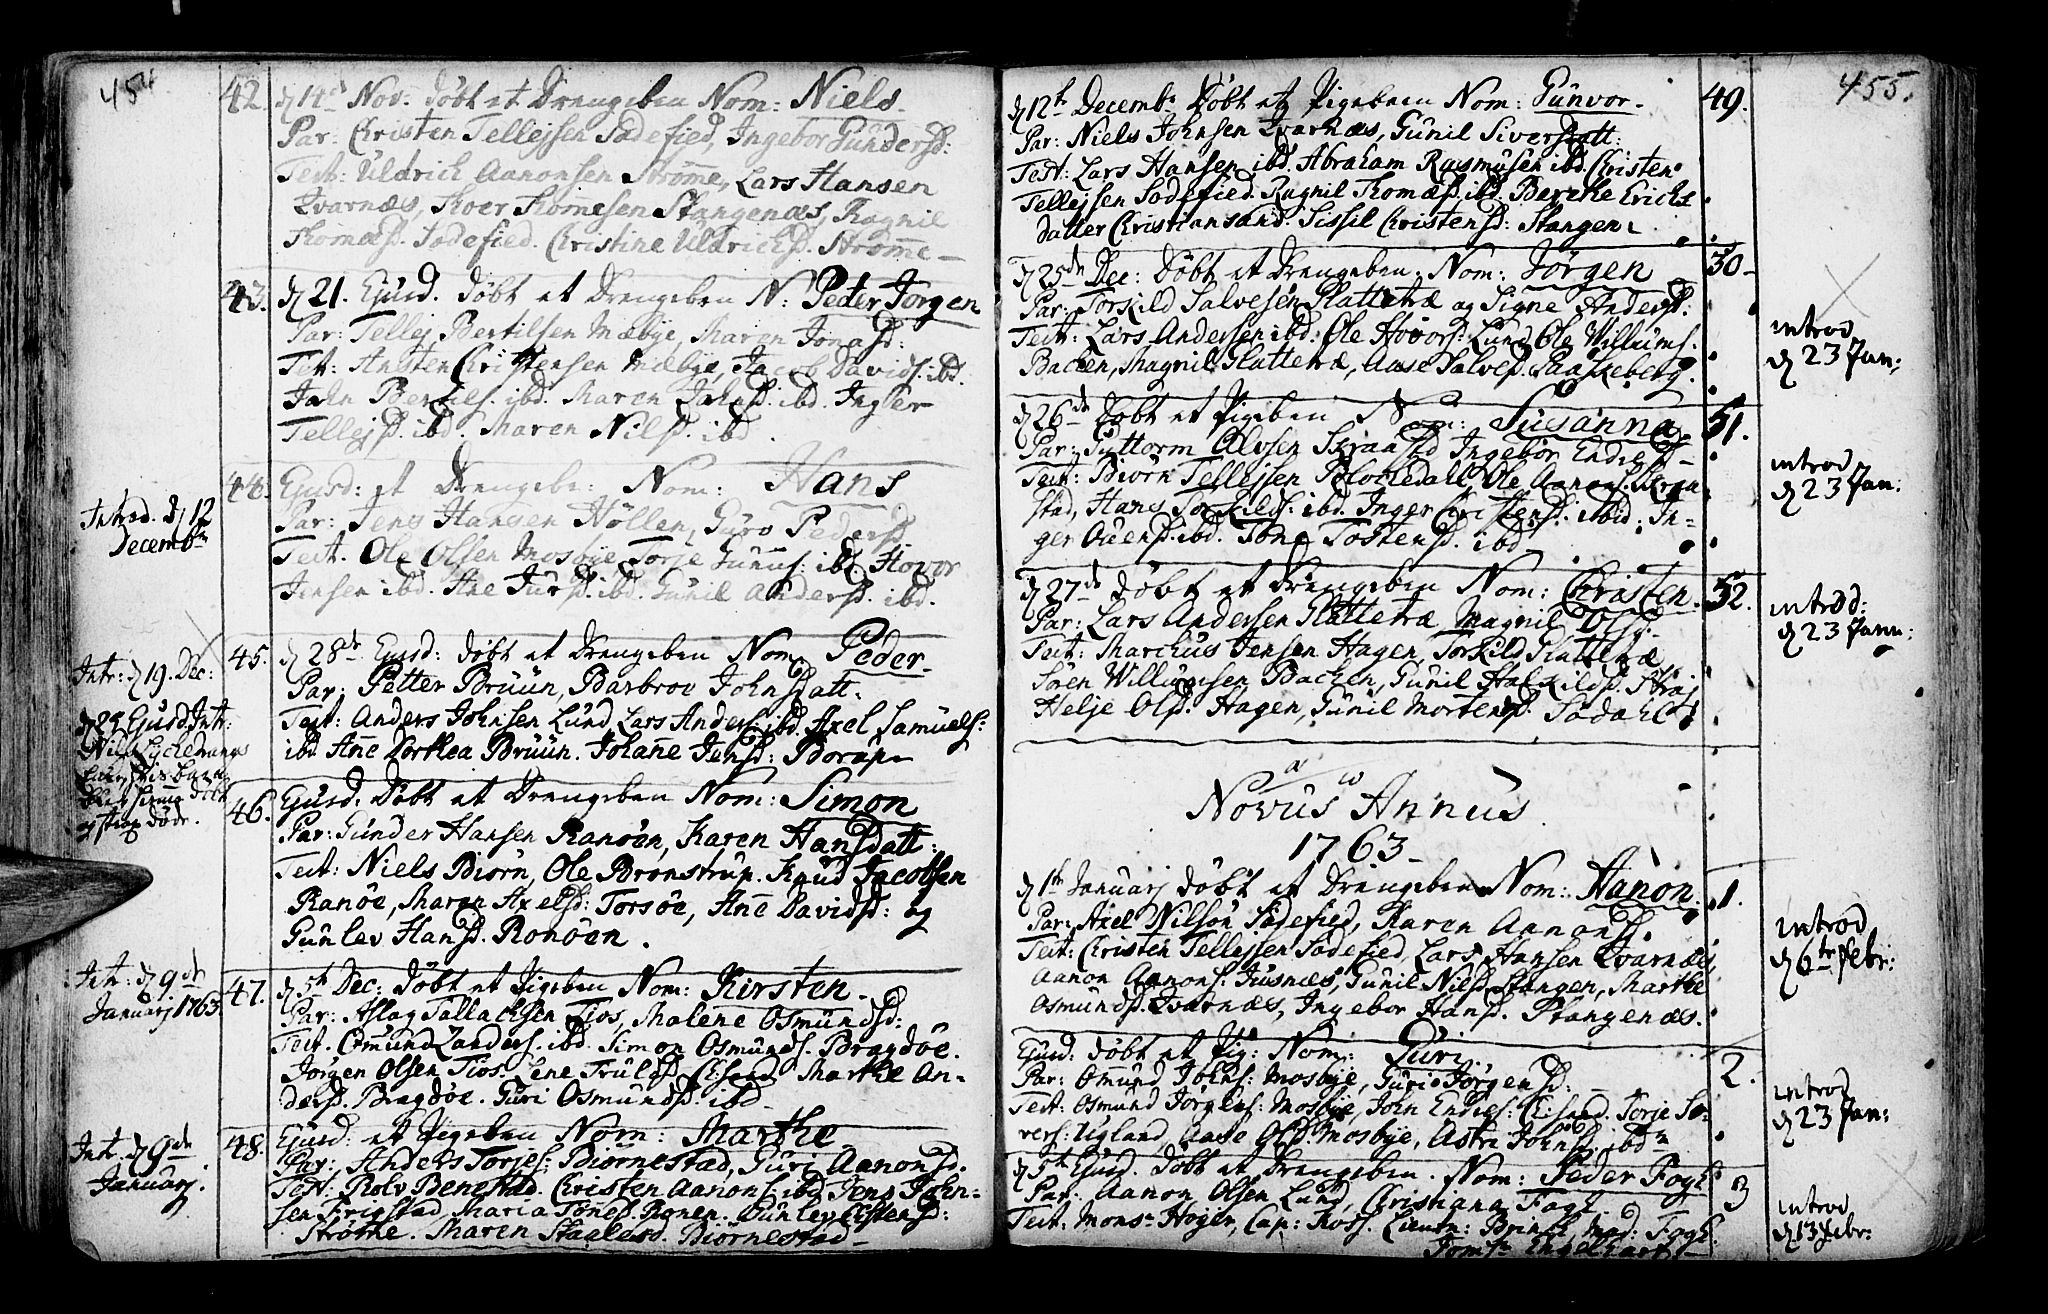 454
42. d 14de Nov: døbt et Drengeben Nom: Niels.
Par: Christen Tellejsen Sødefied, Ingebor Gundersd:
Test: Uldrich Aanonsen Strømme, Lars Hansen
Qvarnæs, Thoer Thommesen Stangenæs, Ragnil
Thomæsd. Sødefied. Christine Uldrichsd. Strømme
43. d 21. Ejusd. døbt et Drengeben N: Peder Jørgen
Par: Tellej Bertilsen Mæbye, Maren Jonasd:
Test: Ansten Christensen Mæbye, Jacob Davids. ibd.
John Bertils. ibd. Maren Johnsd. ibd. Inger
Tellejsd. ibd. Maren Nilsd. ibd.
Introd. d 12
Decembr
44. Ejusd: et Drengebe: Nom: Hans
Par: Jens Hansen Høllen, Guro Pedersd
Test. Ole Olsen Mosbye Torje Gunns: ibd. Hovor
Jensen ibd. Ane Jursd. ibd. Gunil Andersd. ibd.
Intr: d 19. Dec:
45. d 28de Ejusd: døbt et Drengeben Nom. Peder
Par: Petter Brüün, Barbrov Johnsdatt.
Test: Anders Johnsen Lund, Lars Anders: ibd. Axel Samuels:
ibd. Anne Dorthea Brüün. Johanne Jensd: Borup
46. Ejusd. Døbt et Drengeben Nom: Simon
Par: Gunder Hansen Ranøen, Karen Hansdatt:
Test: Niels Biørn, Ole Brønstrup. Knud Jacobsen
Ranøe, Maren Axelsd: Torsøe, Anne Davidsd: og
Gunlev Hansd. Ronøen.
Intr: d 9de
Januarj 1763
47. d 5te Dec: døbt et Pigeben Nom: Kirsten.
Par: Aslag Tallachsen Tios, Malene Osmundsd:
Test. Osmund Zanders. ibd. Simon Osmunds. Bragdøe.
Jørgen Olsen Tios. Ene Trulsd. Chsand Marthe An-
dersd. Bragdøe. Guri Osmundsd. ibd
Int. d 9de
Januarj.
48. Ejusd: et Pigeben Nom: Marthe
Par: Anders Torjes: Biørnestad, Guri Aanonsd.
Test: Rolv Benestad. Christen Aanons. ibd. Jens John-
sen Frigstad Maria Tønesd. Ronen. Gunlev Ristensd:
Strømme. Maren Staalesd. Biørnestad
455.
49. d 12te Decemb. Døbt et Pigeben Nom: Gunvor.
Par: Niels Johnsen Qvarnæs, Gunil Siversdatt:
Test: Lars Hansen ibd. Abraham Rasmusen ibd. Christen
Tellejsen Sødefied. Ragnil Thomæsd. ibd. Berthe Erichs
datter Christiansand. Sissil Christensd: Stangen.
50. d 25de Dec: Døbt et Drengeben. Nom: Jørgen
Par: Torkild Salvesen Flattetræ og Signe Andersd:
Test: Lars Andersen ibd: Ole Hovors: Lund Ole Willums.
Bachen, Magnil Flattetræ, Aase Salvesd. Raaskeberg.
introd
d 23 Jan:
51. d 26de Døbt et Pigeben Nom: Susanna
Par: Guttorm Olvsen Straastad Ingebor Endresd
Test: Biørn Tellejsen Blochedal Ole Aanons.
stad, Hans Torkilds. ibd. Inger Christensd. ibid. In-
ger Ouensd. ibd. Tone Tostensd. ibd.
introd
d 23 Jan.
52. d 27de døbt et Drengeben Nom: Christen.
Par: Lars Andersen Flattetræ Magnil Olsd:
Test: Marchus Jensen Hagen, Torkild Flattetræ
Søren Willumsen Bachen, Gunil Halkildsd.
Helje Olsd. Hagen, Gunil Mortensd. Sødahl
introd:
d 23 Jann:
Novus Annus
1763
1. d 1te Januarj døbt et Drengeben Nom: Aanon.
Par: Axel Nilson Sødefied, Karen Aanonsd.
Test: Christen Tellejsen Sødefied, Lars Hansen Qvarnæs,
Aanon Aanons. Jusnæs, Gunil Nilsd. Stangen, Marthe
Osmundsd. Qvarnæs, Ingebor Hansd. Stangenæs.
introd
d 6te Febr:
2. Ejusd: døbt et Pig: Nom: Guri.
Par: Osmund Johns: Mosbye, Guri Jørgensd:
Test: Osmund Jørgens: Mosbye, John Endres: Chsand. Torje So-
vers: Ugland, Aase Olsd. Mosbye, Astri Johnsd. ibdm
introd
d 23 Jan:
3 d 5te Ejusd. døbt et Drengeben. Nom: Peder Fogh
Par: Aanon Olsen Lund, Christiana Fogh.
Test: Monsr Høyer, Cap: Ross. Lieutn: Brinch, Mad: Fogh.
Jomfr Engelhart
introd
d 13 Febr: